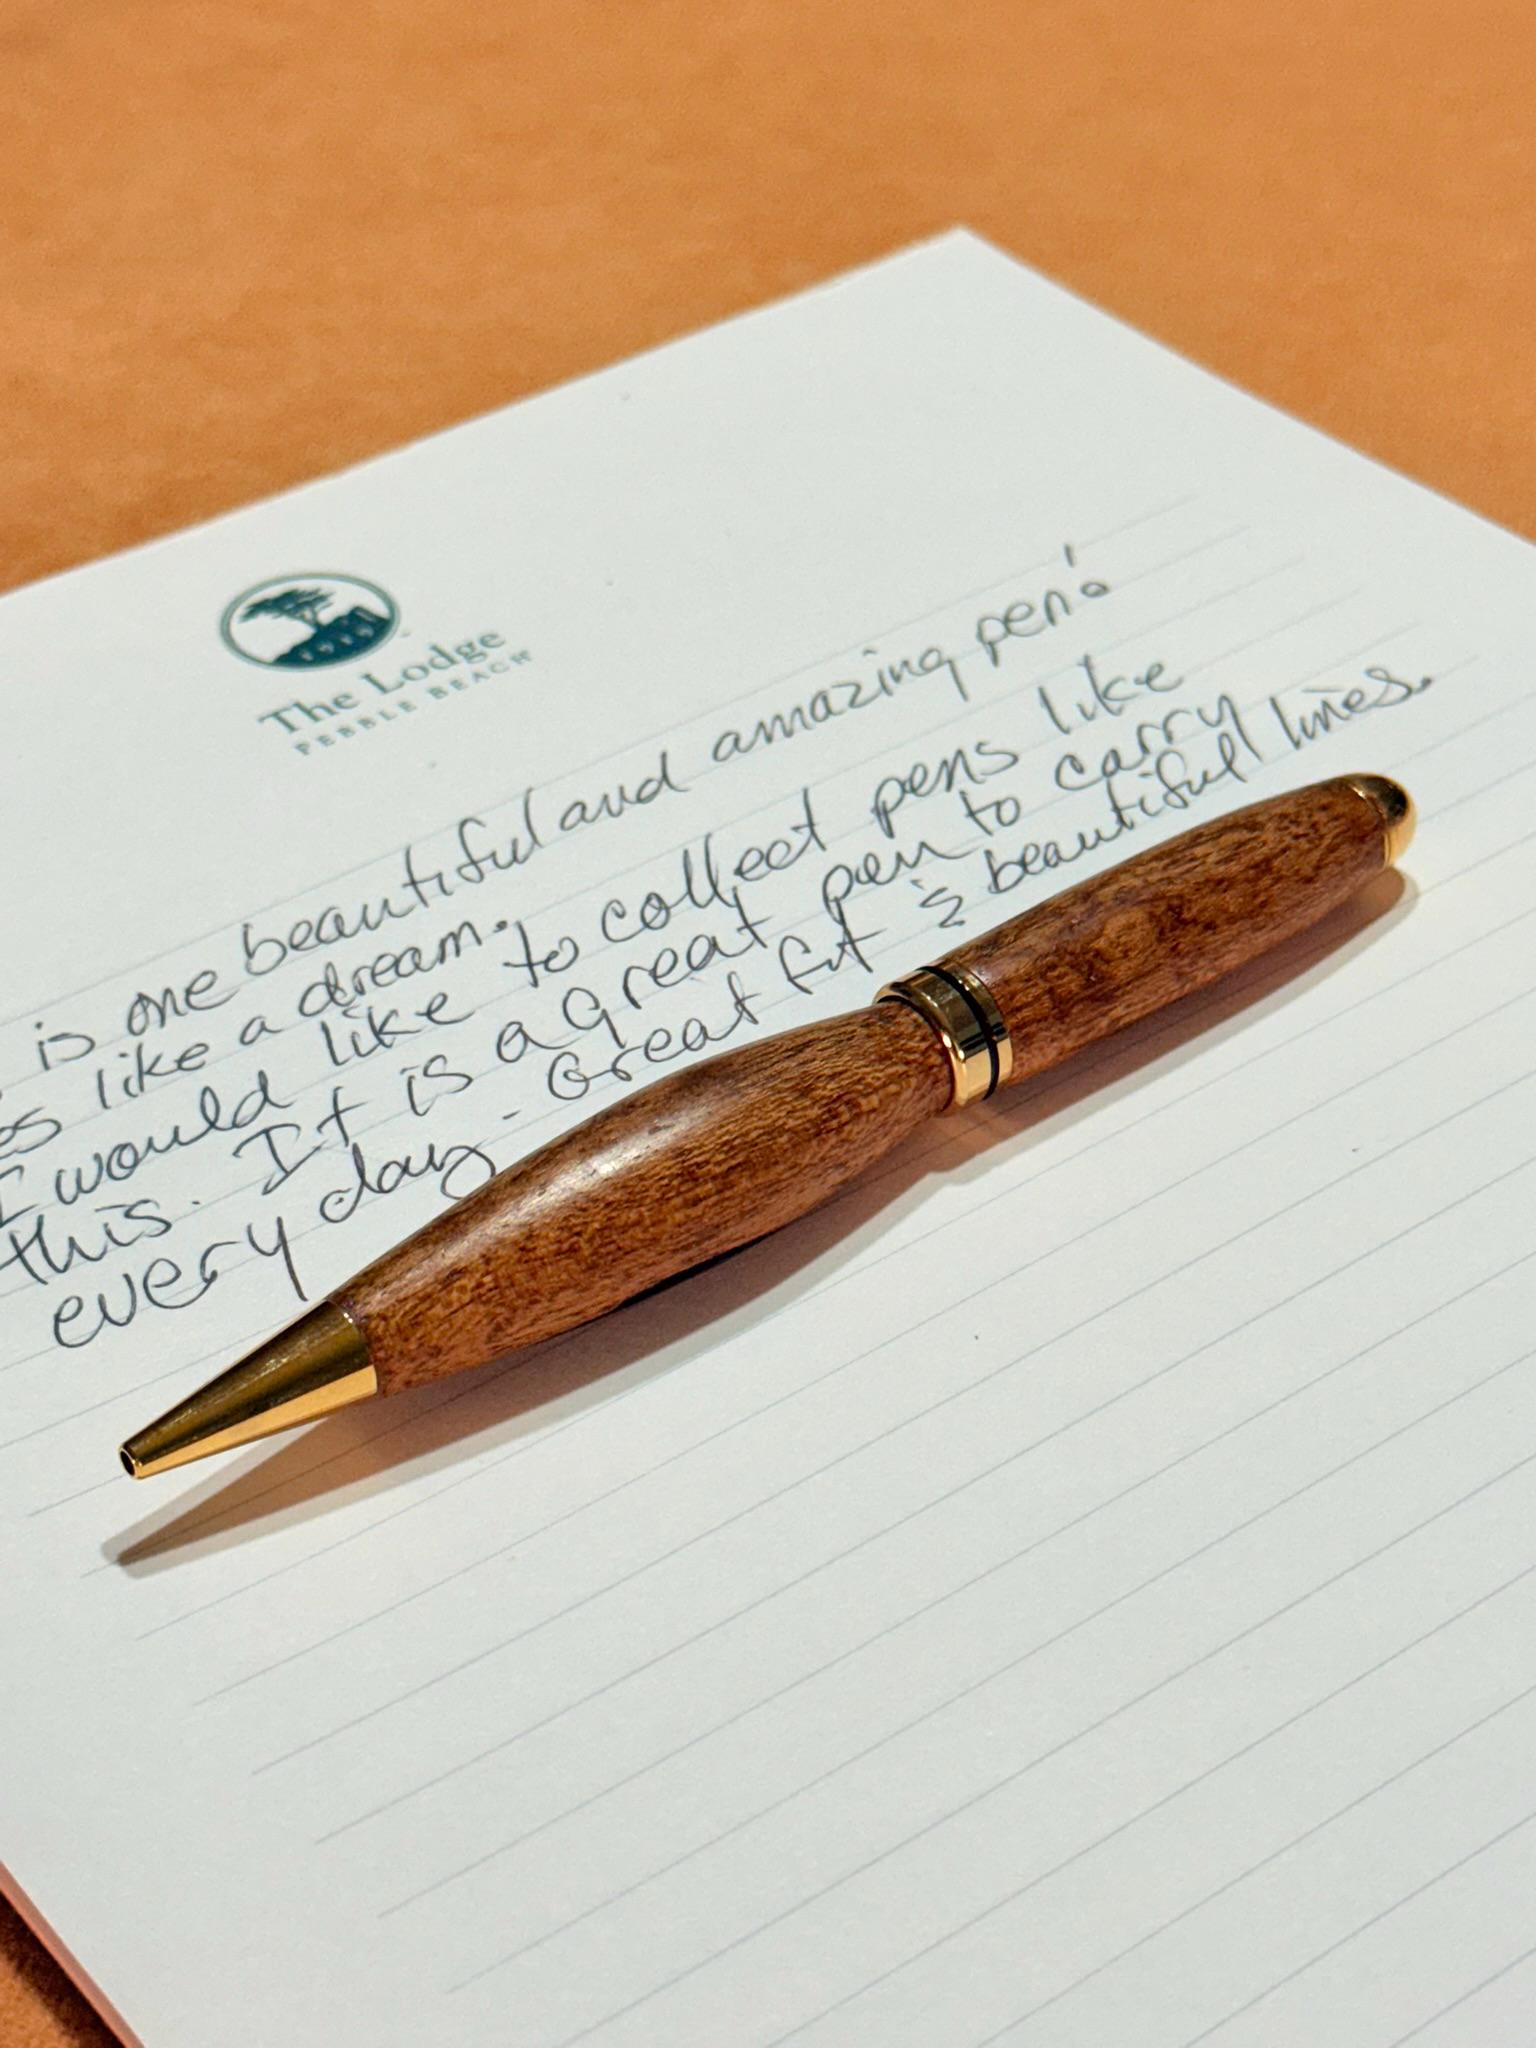 The Lodge
PEBBLE BEACH
is one beautiful and amazing pen!
es like a dream.
I would like to collect pens like
this. It is a great pen to carry
every day - Great fit & beautiful lines.